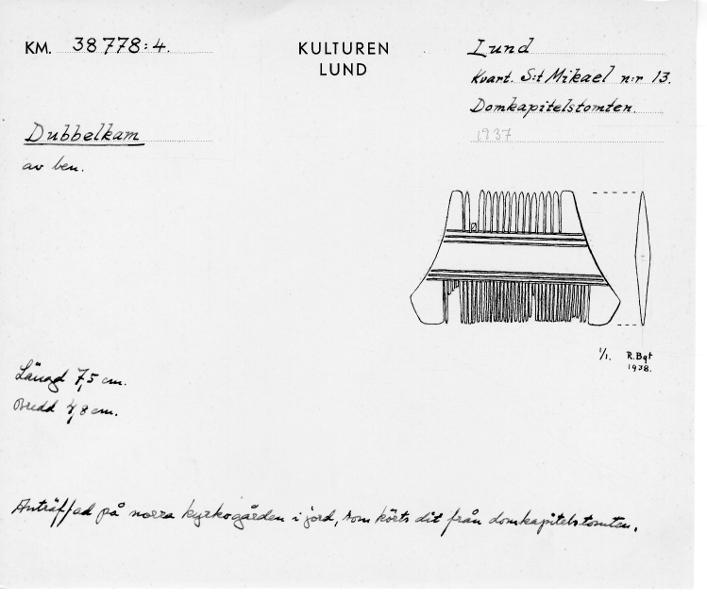 KM. 38778:4.
KULTUREN
LUND
Lund
Kvart. S:t Mikael n:r 13.
Domkapitelstomten.
1937
Dubbelkam
av ben.
1/1. R.Bgt
1938.
Längd 7,5 cm.
Bredd 4,8 cm.
Anträffad på norra kyrkogården i jord, som körts dit från domkapitelstomten.